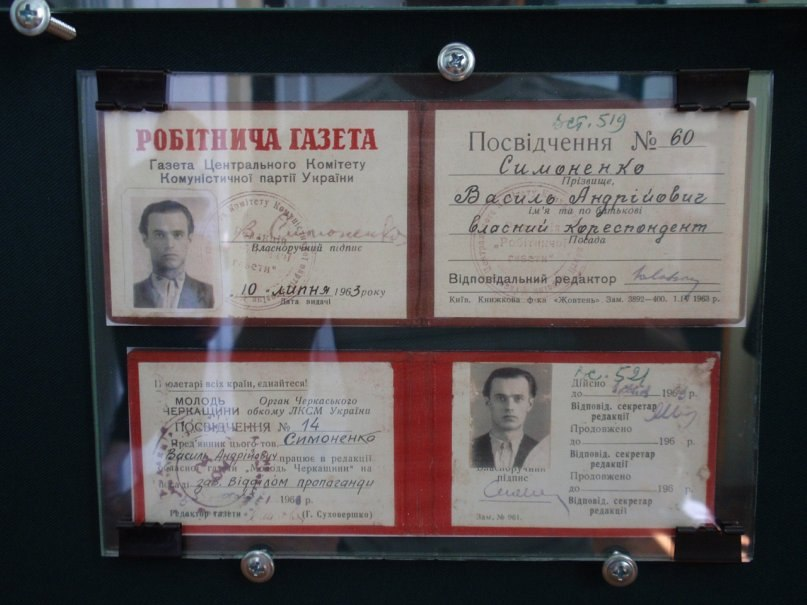 РОБІТНИЧА ГАЗЕТА
Газета Центрального Комітету
Комуністичної партії України
В. Симоненко
Власноручний підпис
10 липня 1963 року
Дата видачі
вст. 519
Посвідчення № 60
Симоненко
Прізвище,
Василь Андрійович
ім'я та по батькові
власний кореспондент
Посада
Відповідальний редактор
Київ. Книжкова ф-ка «Жовтень». Зам. 3892—400. 1.IV 1963 р.
Пролетарі всіх країн, єднайтеся!
МОЛОДЬ ЧЕРКАЩИНИ
Орган Черкаського обкому ЛКСМ України
ПОСВІДЧЕННЯ № 14
Пред'явник цього тов. Симоненко
Василь Андрійович працює в редакції
обласної газети «Молодь Черкащини» на
посаді зав. відділом пропаганди
196 р.
Редактор газети (Г. Суховершко)
підпис
Зам. № 961.
вст. 521
Дійсно
до 196 р.
Відповід. секретар
редакції
Продовжено
до 196 р.
Відповід. секретар
редакції
Продовжено
до 196 р.
Відповід. секретар
редакції